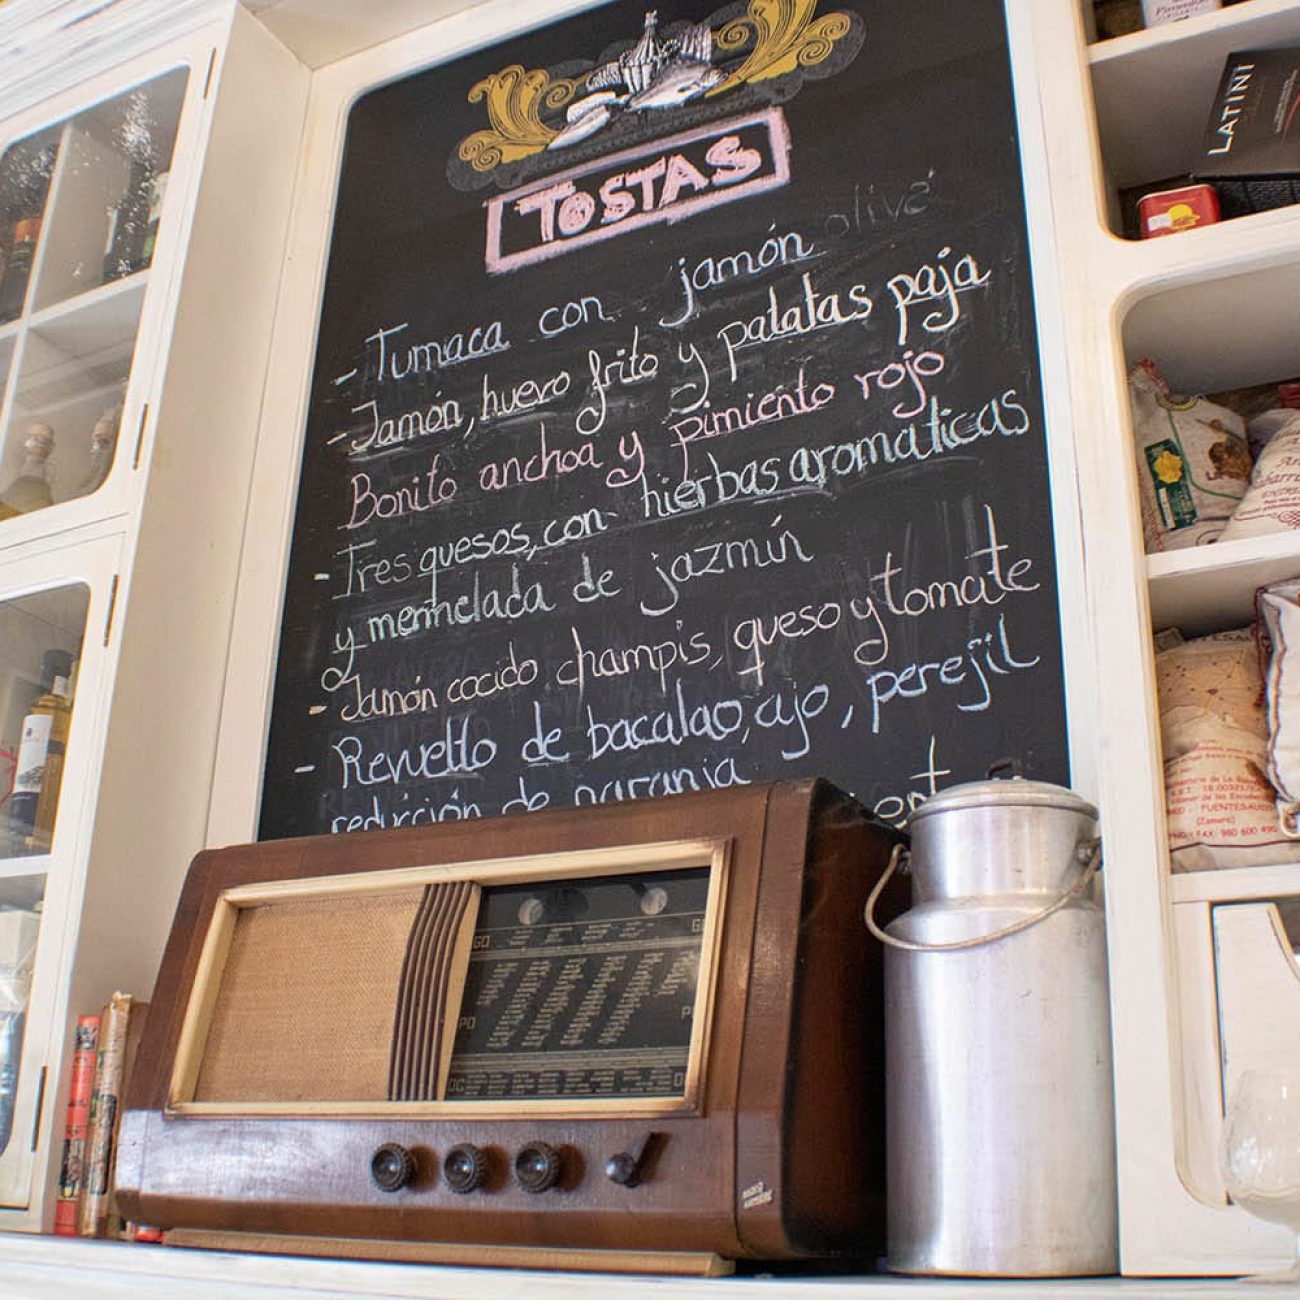 TOSTAS
olive
- Tumaca con jamón
- Jamón, huevo frito y patatas paja
Bonito anchoa y pimiento rojo
- Tres quesos, con hierbas aromaticas
y mermelada de jazmín
- Jamón cocido champis, queso y tomate
- Revuelto de bacalao, ajo, perejil
reducción de naranja
LATINI
FUENTESAUCO
(Zamora)